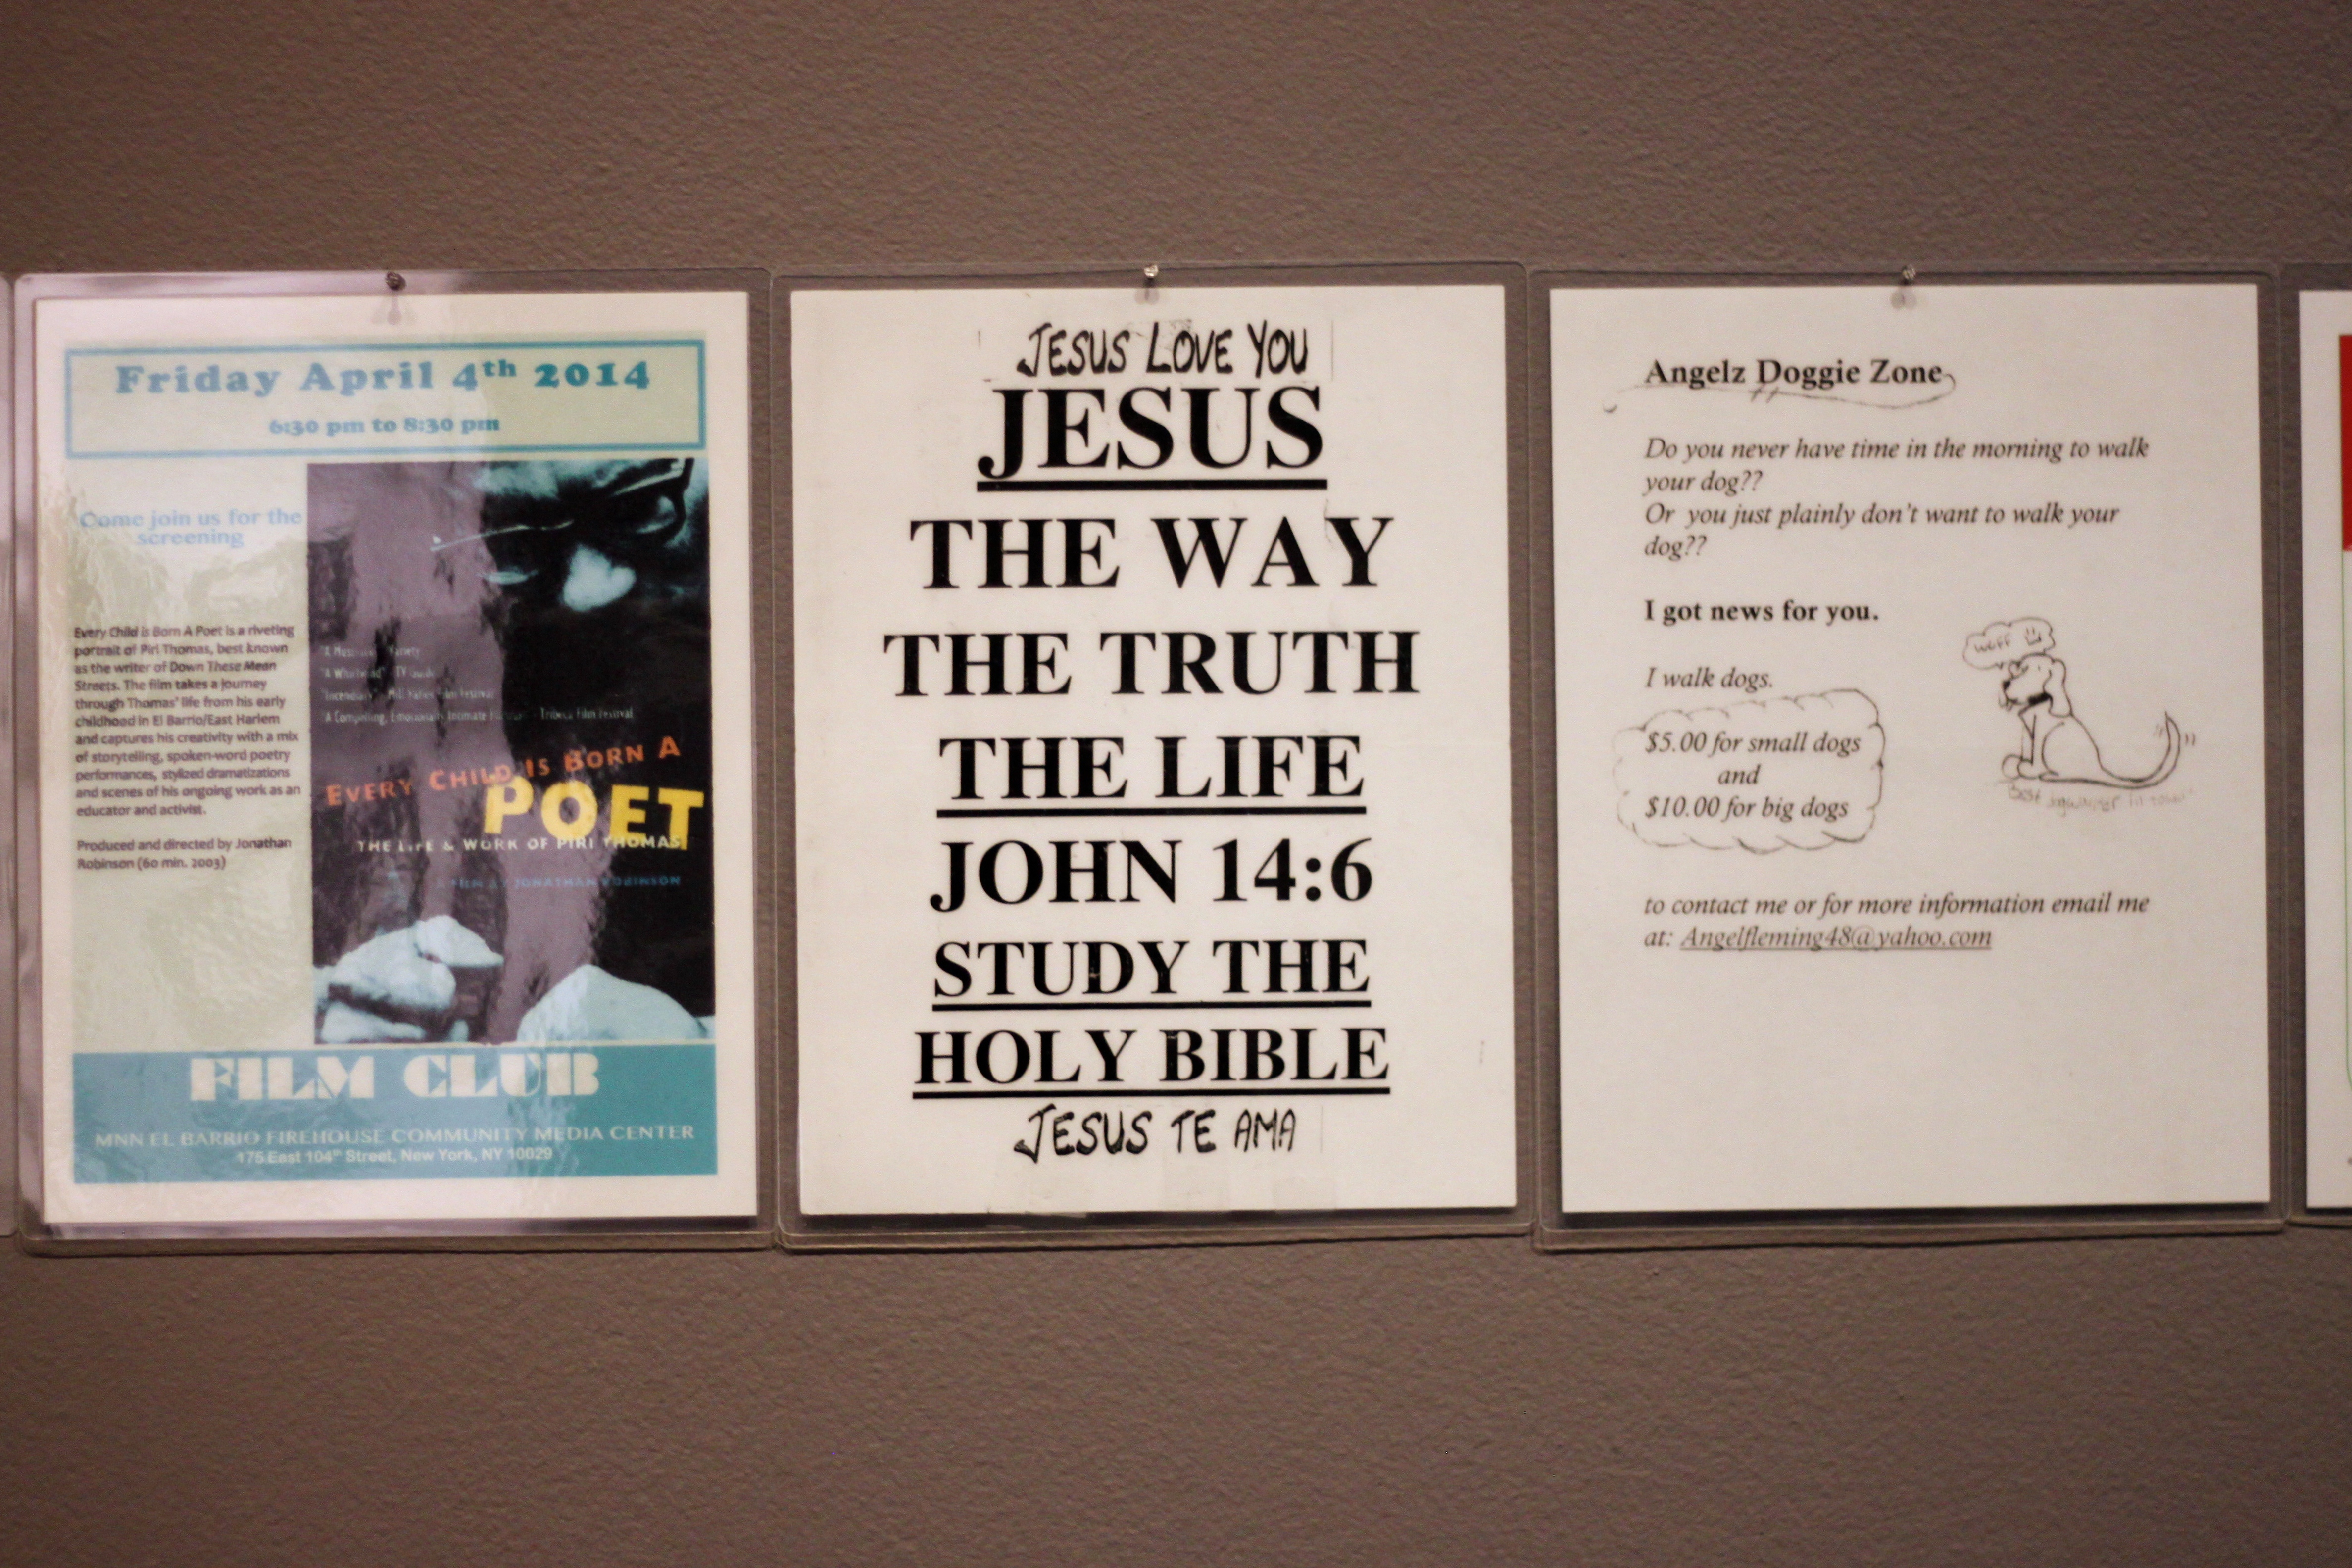 Friday April 4th 2014
6:30 pm to 8:30 pm
Come join us for the
screening
Every Child is Born A Poet is a riveting
portrait of Piri Thomas, best known
as the writer of Down These Mean
Streets. The film takes a journey
through Thomas' life from his early
childhood in El Barrio/East Harlem
and captures his creativity with a mix
of storytelling, spoken-word poetry
performances, stylized dramatizations
and scenes of his ongoing work as an
educator and activist.
Produced and directed by Jonathan
Robinson (60 min. 2003)
"A Variety
"A Whirlwind" - TV Guide
"Incendiary" - Mill Valley Film Festival
"A Compelling, Emotionally Intimate - Tribeca Film Festival
EVERY CHILD IS BORN A
POET
THE LIFE & WORK OF PIRI THOMAS
A FILM BY JONATHAN ROBINSON
FILM CLUB
MNN EL BARRIO FIREHOUSE COMMUNITY MEDIA CENTER
175 East 104th Street, New York, NY 10029
JESUS LOVE YOU
JESUS
THE WAY
THE TRUTH
THE LIFE
JOHN 14:6
STUDY THE
HOLY BIBLE
JESUS TE AMA
Angelz Doggie Zone
Do you never have time in the morning to walk
your dog??
Or you just plainly don't want to walk your
dog??
I got news for you.
woff
I walk dogs.
$5.00 for small dogs
and
$10.00 for big dogs
Best dogwalker in town
to contact me or for more information email me
at: Angelfleming48@yahoo.com